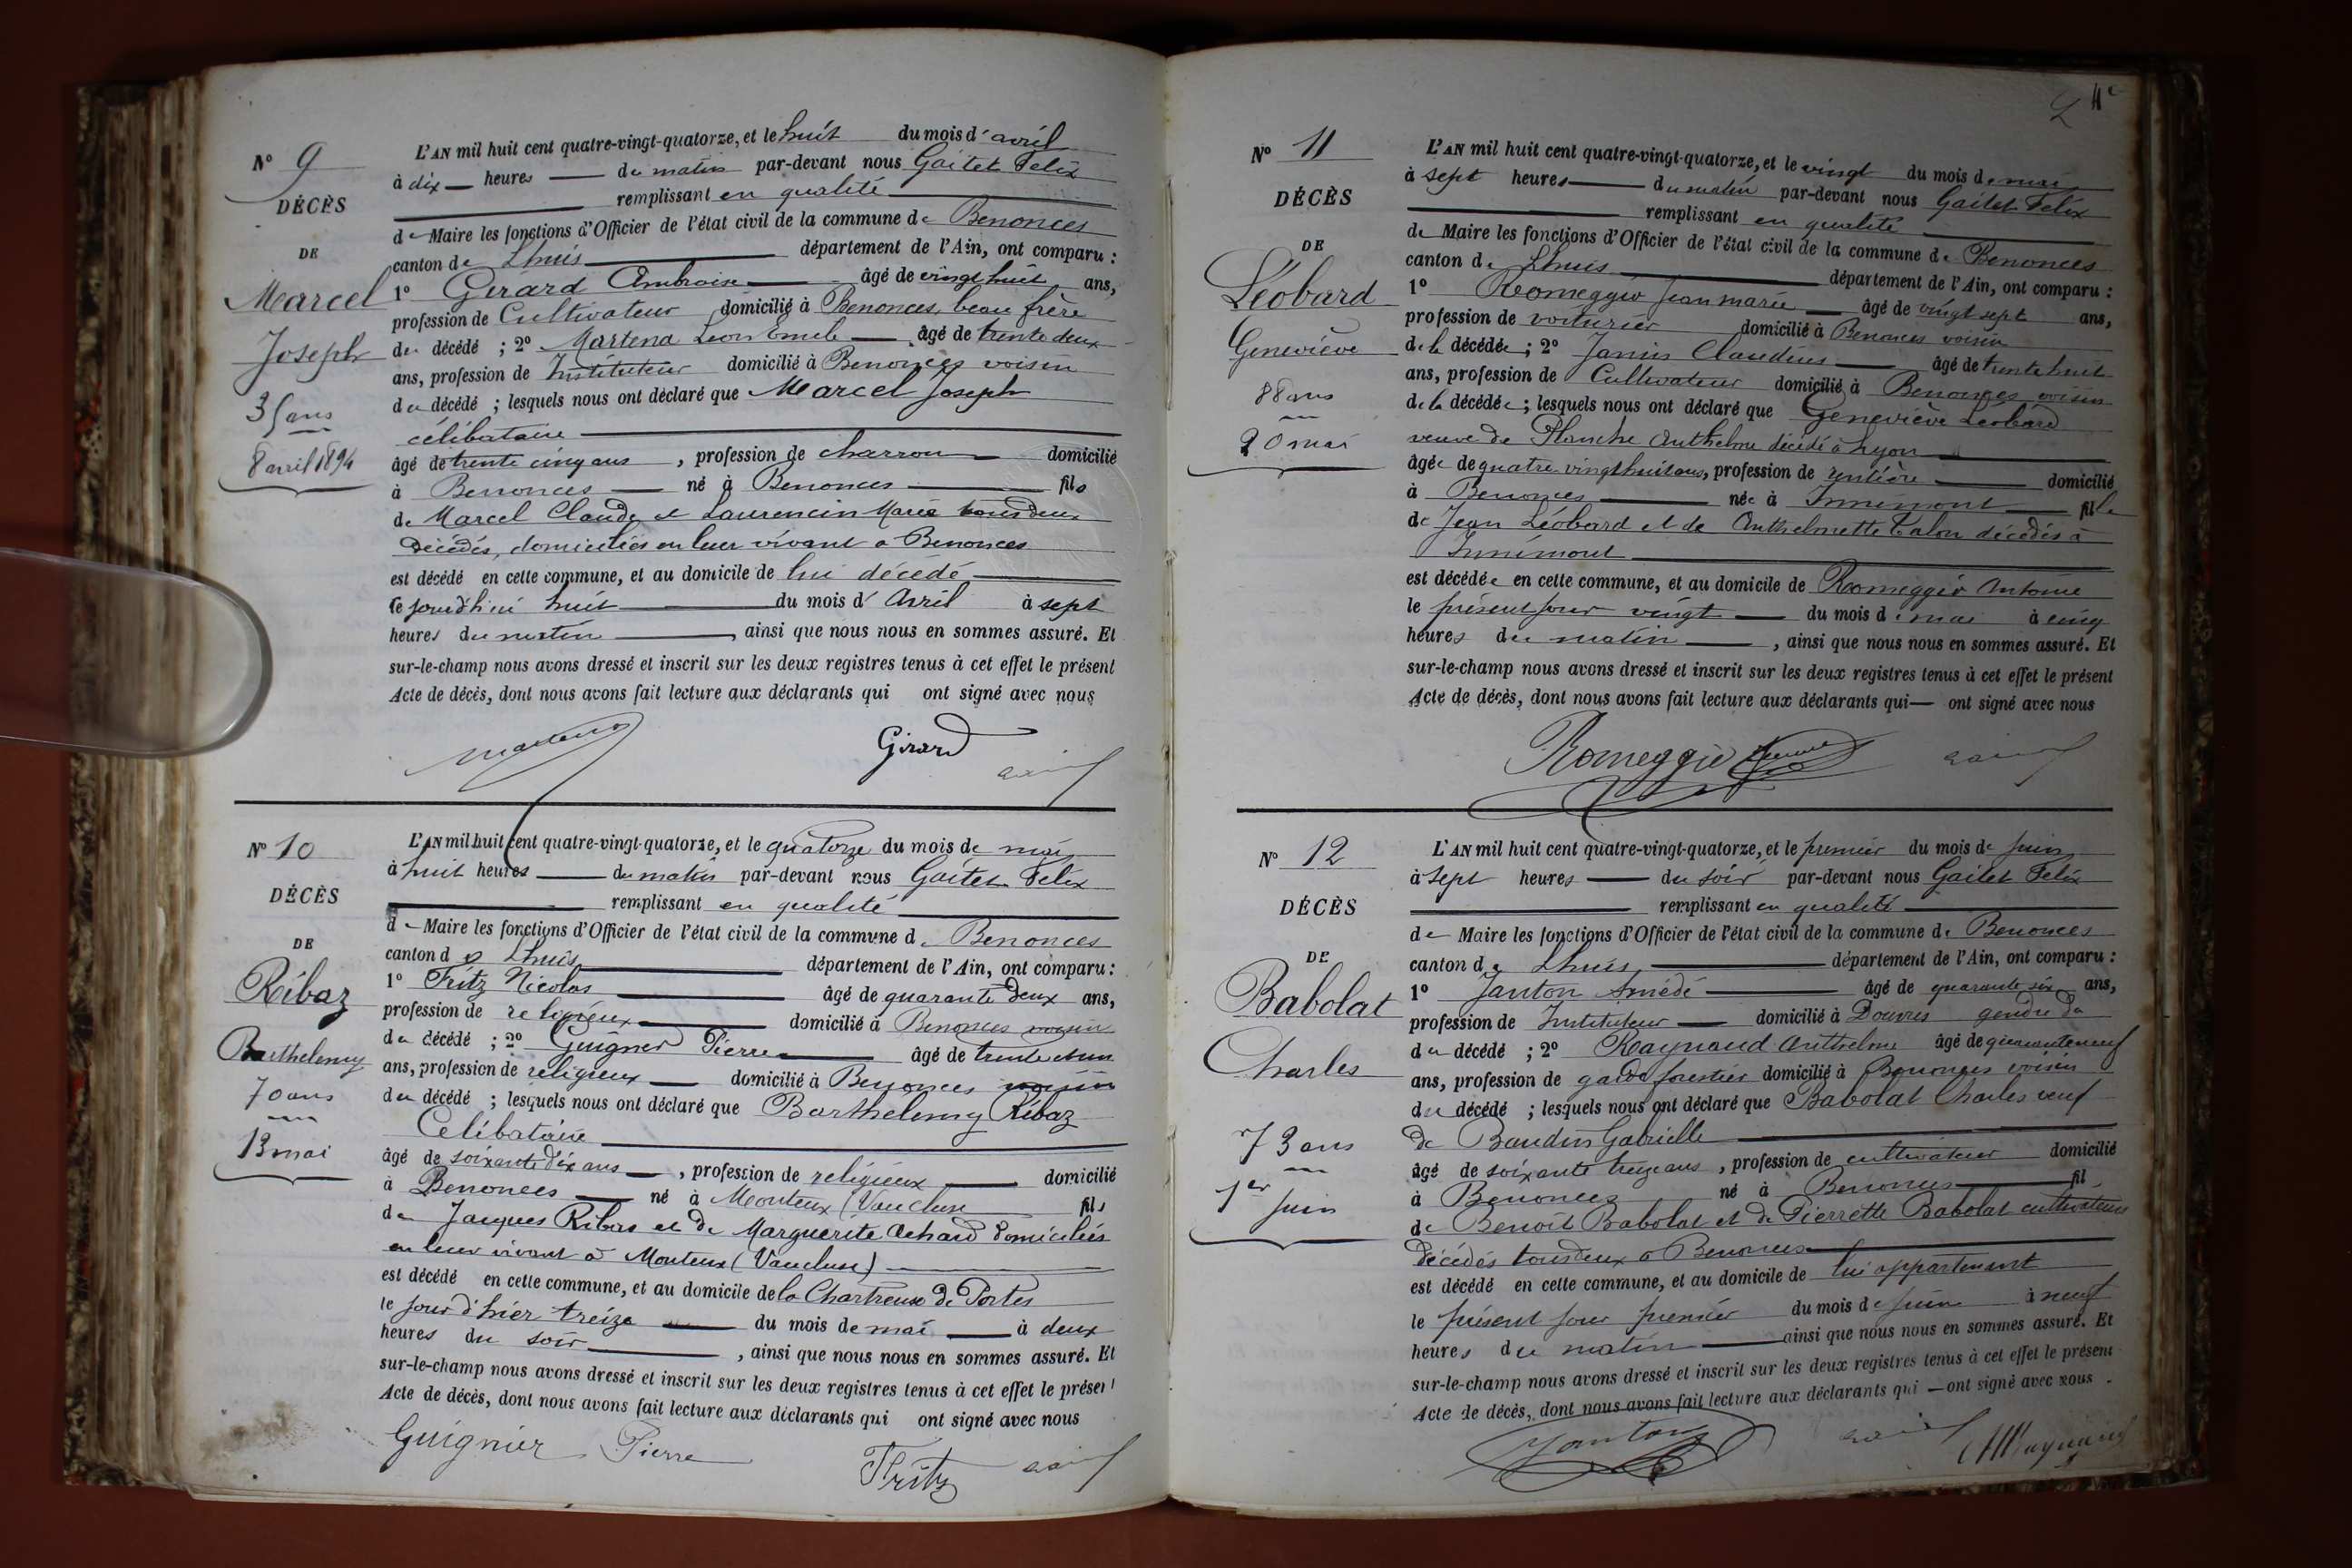 Nº 9
DÉCÈS
DE
Marcel
Joseph
35 ans
8 avril 1894
L'AN mil huit cent quatre-vingt-quatorze, et le huit du mois d'avril
à dix heures du matin par-devant nous Gaitet Félix
remplissant en qualité
de Maire les fonctions d'Officier de l'état civil de la commune de Benonces
canton de Lhuis département de l'Ain, ont comparu :
1º Girard Ambroise âgé de vingt huit ans,
profession de Cultivateur domicilié à Benonces, beau frère
du décédé ; 2º Martena Léon Emile âgé de trente deux
ans, profession de Instituteur domicilié à Benonces voisin
du décédé ; lesquels nous ont déclaré que Marcel Joseph
célibataire
âgé de trente cinq ans, profession de charron domicilié
à Benonces né à Benonces fils
de Marcel Claude et Laurencin Marie tous deux
décédés, domiciliés en leur vivant a Benonces
est décédé en cette commune, et au domicile de lui décédé
le jourd'hui huit du mois d'Avril à sept
heures du matin, ainsi que nous nous en sommes assuré. Et
sur-le-champ nous avons dressé et inscrit sur les deux registres tenus à cet effet le présent
Acte de décès, dont nous avons fait lecture aux déclarants qui ont signé avec nous
Martena Girard
Nº 10
DÉCÈS
DE
Ribaz
Barthelemy
70 ans
13 mai
L'AN mil huit cent quatre-vingt-quatorze, et le quatorze du mois de mai
à huit heures du matin par-devant nous Gaitet Félix
remplissant en qualité
de Maire les fonctions d'Officier de l'état civil de la commune de Benonces
canton de Lhuis département de l'Ain, ont comparu :
1º Fritz Nicolas âgé de quarante deux ans,
profession de religieux domicilié à Benonces voisin
du décédé ; 2º Guignier Pierre âgé de trente et un
ans, profession de religieux domicilié à Benonces voisin
du décédé ; lesquels nous ont déclaré que Barthelemy Ribaz
Célibataire
âgé de soixante dix ans, profession de religieux domicilié
à Benonces né à Monteux (Vaucluse fils
de Jacques Ribas et de Marguerite Achard domiciliés
en leur vivant à Monteux (Vaucluse)
est décédé en cette commune, et au domicile de la Chartreuse de Portes
le jour d'hier treize du mois de mai à deux
heures du soir, ainsi que nous nous en sommes assuré. Et
sur-le-champ nous avons dressé et inscrit sur les deux registres tenus à cet effet le présent
Acte de décès, dont nous avons fait lecture aux déclarants qui ont signé avec nous
Guignier Pierre Fritz
2 4e
Nº 11
DÉCÈS
DE
Léobard
Geneviève
88 ans
20 mai
L'AN mil huit cent quatre-vingt-quatorze, et le vingt du mois de mai
à sept heures du matin par-devant nous Gaitet Félix
remplissant en qualité
de Maire les fonctions d'Officier de l'état civil de la commune de Benonces
canton de Lhuis département de l'Ain, ont comparu :
1º Romeggio Jean marie âgé de vingt sept ans,
profession de voiturier domicilié à Benonces voisin
de la décédée ; 2º Janin Claudius âgé de trente huit
ans, profession de Cultivateur domicilié à Benonces voisin
de la décédée ; lesquels nous ont déclaré que Geneviève Léobard
veuve de Planche Anthelme décédé à Lyon
âgée de quatre vingt huit ans, profession de rentière domicilié
à Benonces née à Innimont fille
de Jean Léobard et de Anthelmette Talon décédés à
Innimont
est décédée en cette commune, et au domicile de Romeggio Antoine
le présent jour vingt du mois de mai à cinq
heures du matin, ainsi que nous nous en sommes assuré. Et
sur-le-champ nous avons dressé et inscrit sur les deux registres tenus à cet effet le présent
Acte de décès, dont nous avons fait lecture aux déclarants qui ont signé avec nous
Romeggio
Nº 12
DÉCÈS
DE
Babolat
Charles
73 ans
1er Juin
L'AN mil huit cent quatre-vingt-quatorze, et le premier du mois de juin
à sept heures du soir par-devant nous Gaitet Félix
remplissant en qualité
de Maire les fonctions d'Officier de l'état civil de la commune de Benonces
canton de Lhuis département de l'Ain, ont comparu :
1º Janton Amédé âgé de quarante six ans,
profession de Instituteur domicilié à Douvres gendre du
du décédé ; 2º Raynaud Anthelme âgé de
ans, profession de garde forestier domicilié à Benonces voisin
du décédé ; lesquels nous ont déclaré que Babolat Charles veuf
de Baudin Gabrielle
âgé de soixante treize ans, profession de cultivateur domicilié
à Benonces né à Benonces fil
de Benoit Babolat et de Pierrette Babolat cultivateurs
décédés tous deux a Benonces
est décédé en cette commune, et au domicile de lui appartenant
le présent jour premier du mois de juin à neuf
heures du matin ainsi que nous nous en sommes assuré. Et
sur-le-champ nous avons dressé et inscrit sur les deux registres tenus à cet effet le présent
Acte de décès, dont nous avons fait lecture aux déclarants qui ont signé avec nous.
Janton